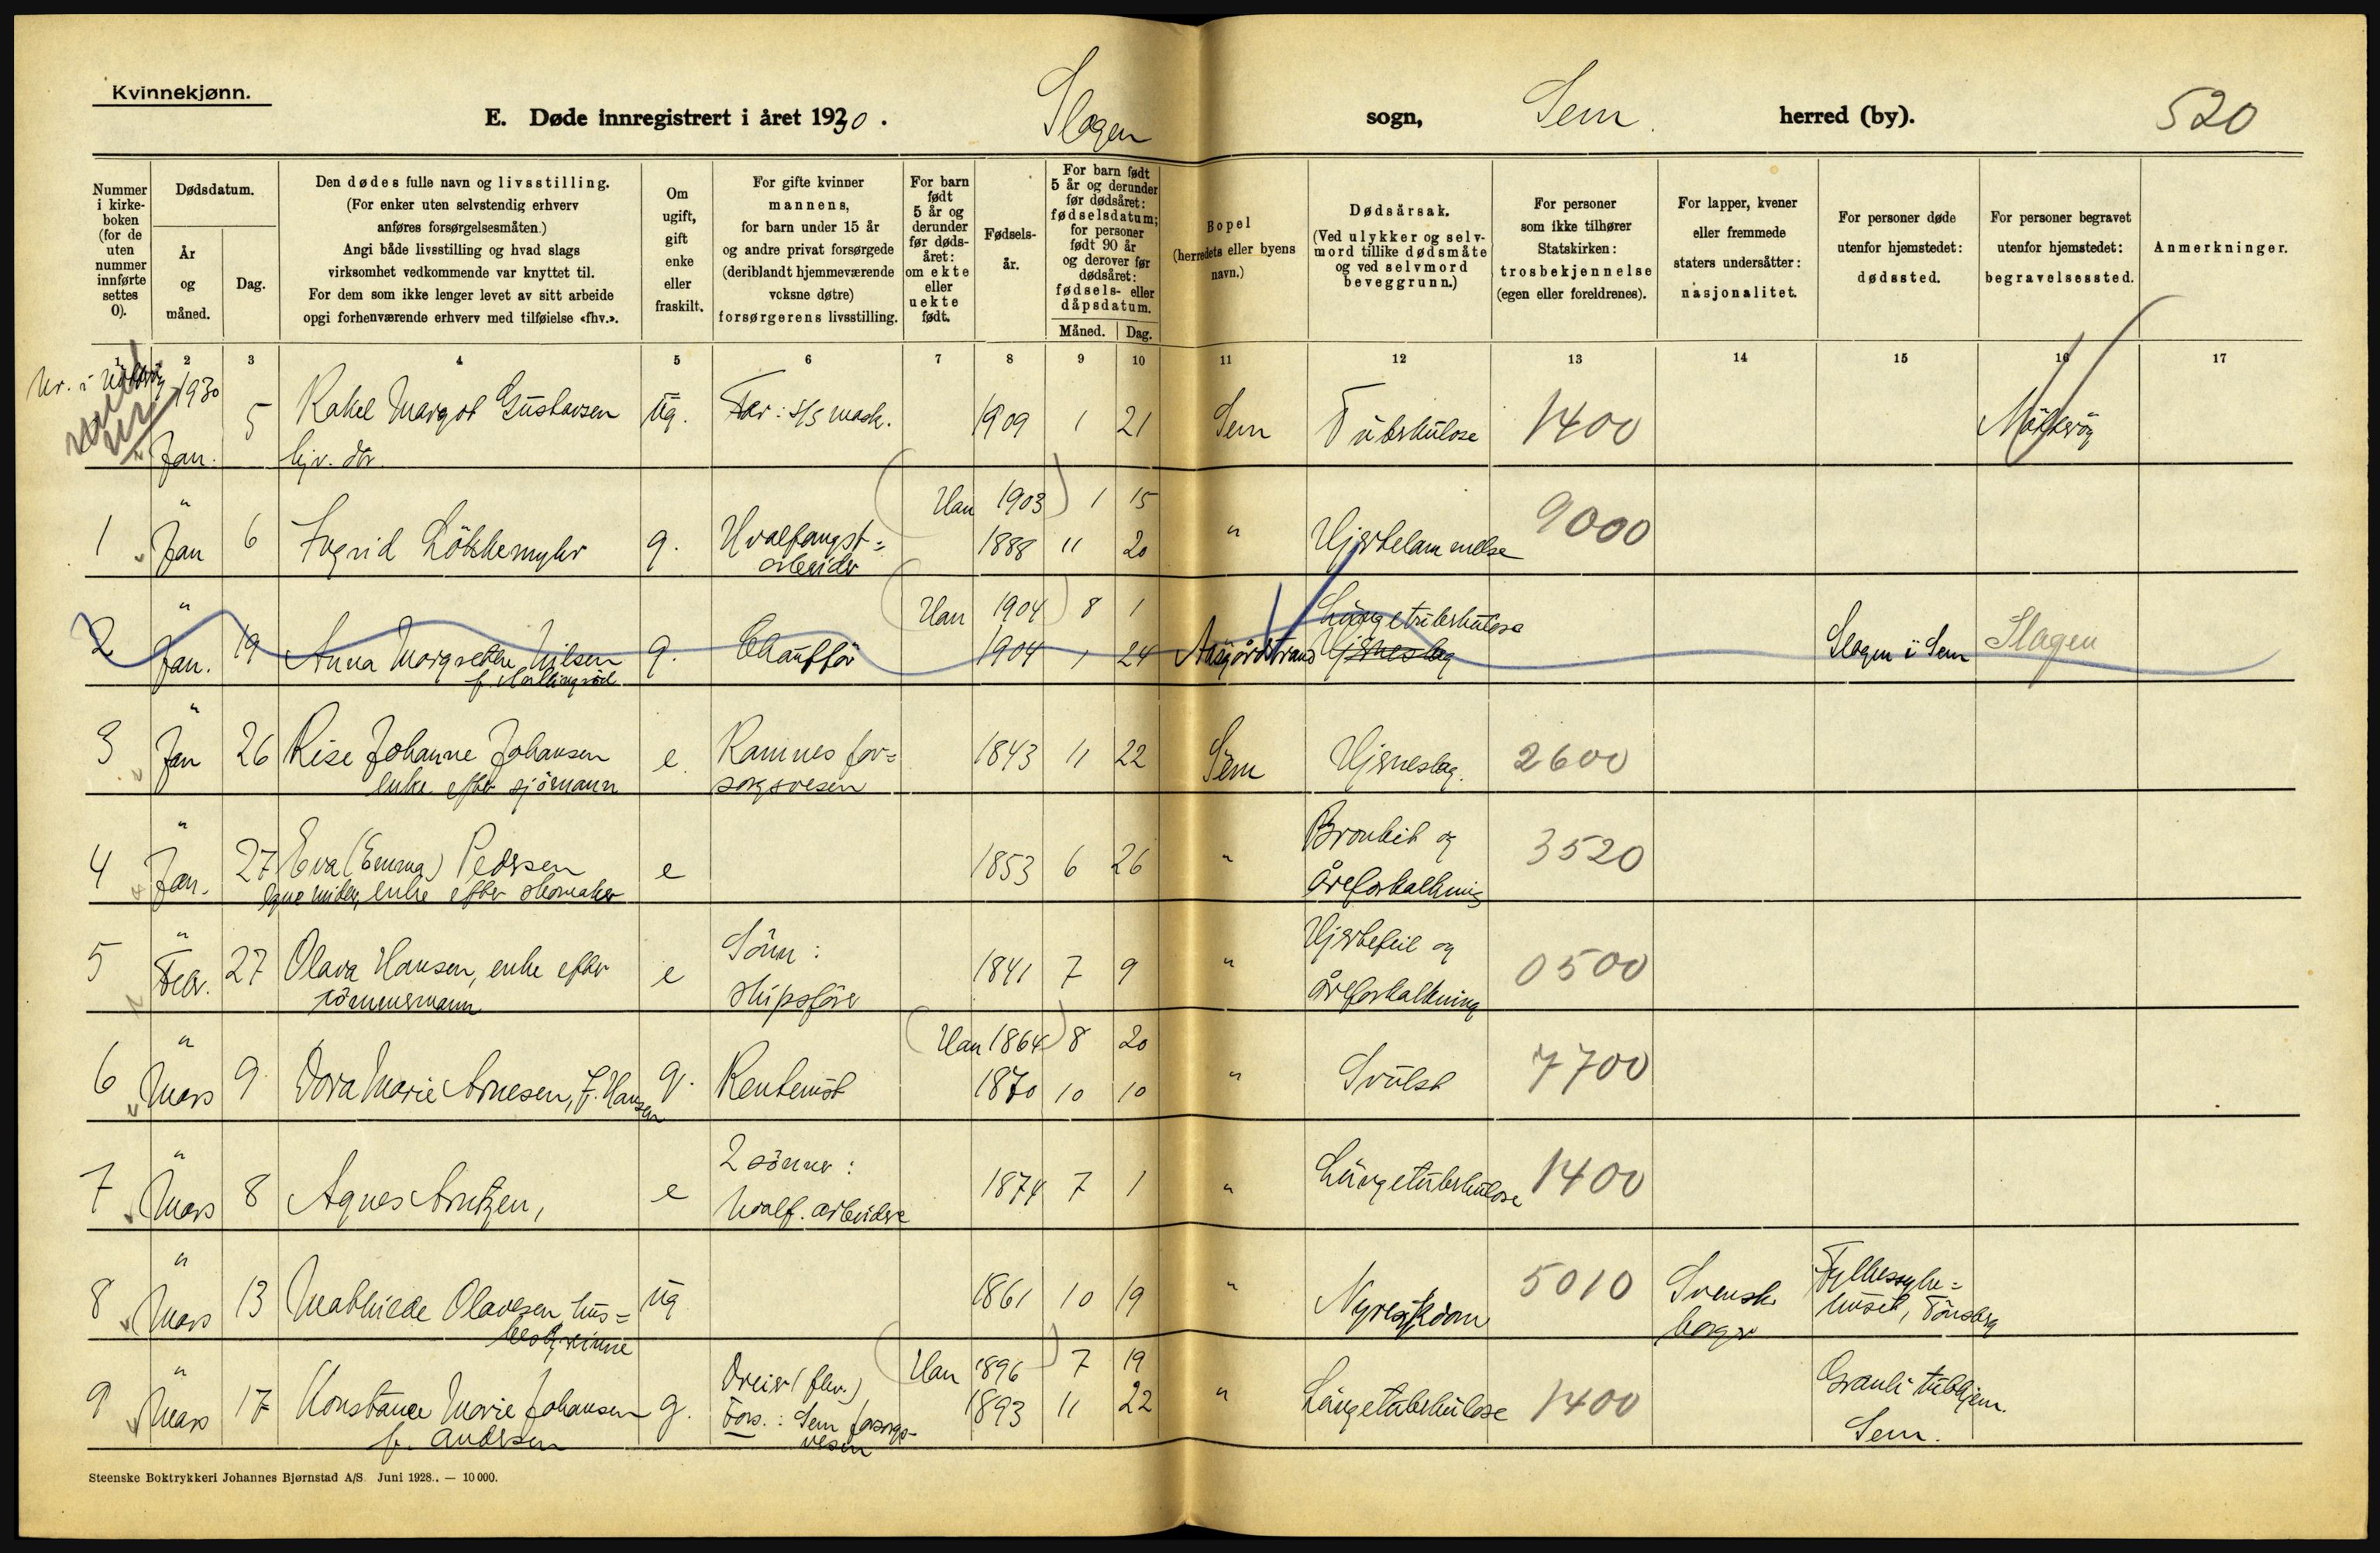 Kvinnekjønn.
E. Døde innregistrert i året 1930.
Slagen
sogn,
Sem
herred (by).
520
Nummer i kirkeboken (for de uten nummer innførte settes 0).
Dødsdatum.
År og måned.
Dag.
Den dødes fulle navn og livsstilling.
(For enker uten selvstendig erhverv
anføres forsørgelsesmåten.)
Angi både livsstilling og hvad slags
virksomhet vedkommende var knyttet til.
For dem som ikke lenger levet av sitt arbeide
opgi forhenværende erhverv med tilføielse «fhv.».
Om ugift, gift enke eller fraskilt.
For gifte kvinner
mannens,
for barn under 15 år
og andre privat forsørgede
(deriblandt hjemmeværende
voksne døtre)
forsørgerens livsstilling.
For barn født 5 år og derunder før dødsåret: om ekte eller uekte født.
Fødselsår.
For barn født 5 år og derunder før dødsåret: fødselsdatum; for personer født 90 år og derover før dødsåret: fødsels- eller dåpsdatum.
Måned. Dag.
Bopel
(herredets eller byens
navn.)
Dødsårsak.
(Ved ulykker og selvmord tillike dødsmåte
og ved selvmord
beveggrunn.)
For personer
som ikke tilhører
Statskirken:
trosbekjennelse
(egen eller foreldrenes).
For lapper, kvener
eller fremmede
staters undersåtter:
nasjonalitet.
For personer døde
utenfor hjemstedet:
dødssted.
For personer begravet
utenfor hjemstedet:
begravelsessted.
Anmerkninger.
1 2 3 4 5 6 7 8 9 10 11 12 13 14 15 16 17
Nr. i
1930 Jan. 5 Rakel Margot Gustavsen ug. Far: s/s mask. 1909 1 21 Sem Tuberkulose 1400
hjv. dtr.
Han 1903 1 15
1 " Jan 6 Ingrid Løkkemyhr g. Hvalfangst= 1888 11 20 " Hjertelammelse 9000
arbeider
Han 1904 8 1 Lungetuberkulose
2 " Jan. 19 Anna Margrethe Nilsen g. Chauffør 1904 1 24 Aasgårdstrand Hjerneslag Slagen i Sem Slagen
3 " Jan 26 Lise Johanne Johansen e. Ramnes for= 1843 11 22 Sem Hjerneslag. 2600
enke efter sjömann sorgsvesen
4 " Jan. 27 Eva (Emma) Pedersen e 1853 6 26 " Bronkit og 3520
egne midler, enke efter skomaker Åreforkalkning
5 " Febr. 27 Olava Hansen, enke efter e Sönn: 1841 7 9 " Hjertefeil og 0500
tömmermann skipsförer åreforkalkning
Han 1864 8 20
6 " Mars 9 Dora Marie Arnesen, f. Hansen g. Rentenist 1870 10 10 " Svulst 7700
7 " Mars 8 Agnes Arntzen, e 2 sönner: 1874 7 1 " Lungetuberkulose 1400
hvalf. arbeidere
8 " Mars 13 Mathilde Olavesen, hus= ug 1861 10 19 " Nyresykdom 5010 Svensk Fylkessyke=
bestyrinne borger huset, Tönsberg
Han 1896 7 19
9 " Mars 17 Konstance Marie Johansen g. Dreier (fhv.) 1893 11 22 " Lungetuberkulose 1400 Granli tubhjem.
f. Andersen Fors.: Sem forsorgs-
vesen Sem.
Steenske Boktrykkeri Johannes Bjørnstad A/S. Juni 1928. — 10 000.